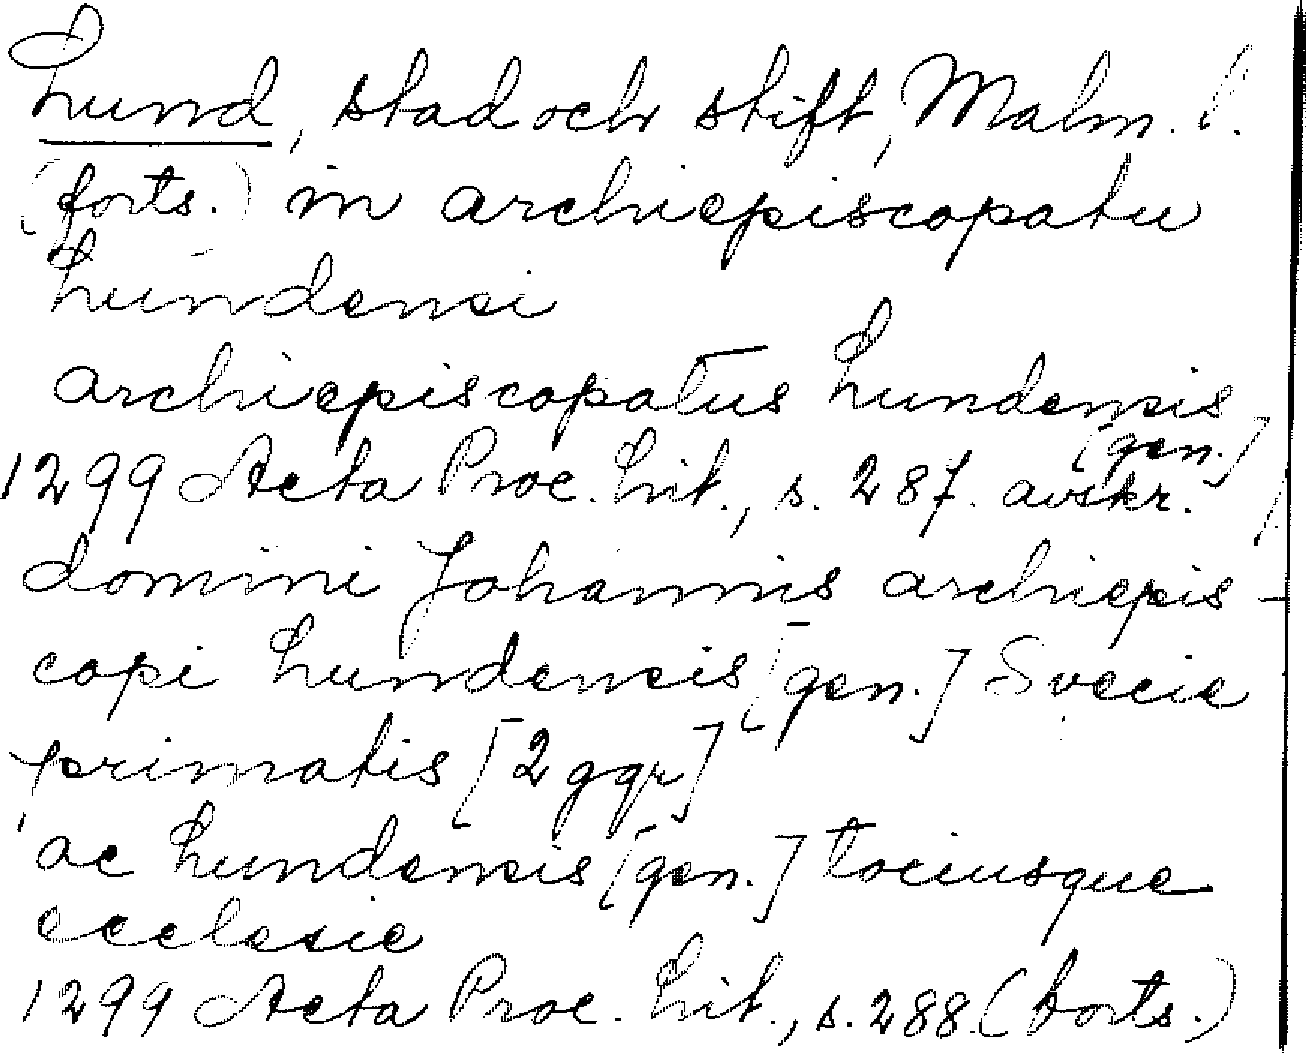 Lund, stad och stift, Malm. l.
(forts.) in archiepiscopatu
Lundensi
archiepiscopatus Lundensis
[gen.]
1299 Acta Proc. Lit., s. 287. avskr.
domini Johannis archiepis-
copi Lundensis [gen.] Svecie
primatis [2 ggr]
ac Lundensis [gen.] tociusque
ecclesie
1299 Acta Proc. Lit., s. 288. (forts.)